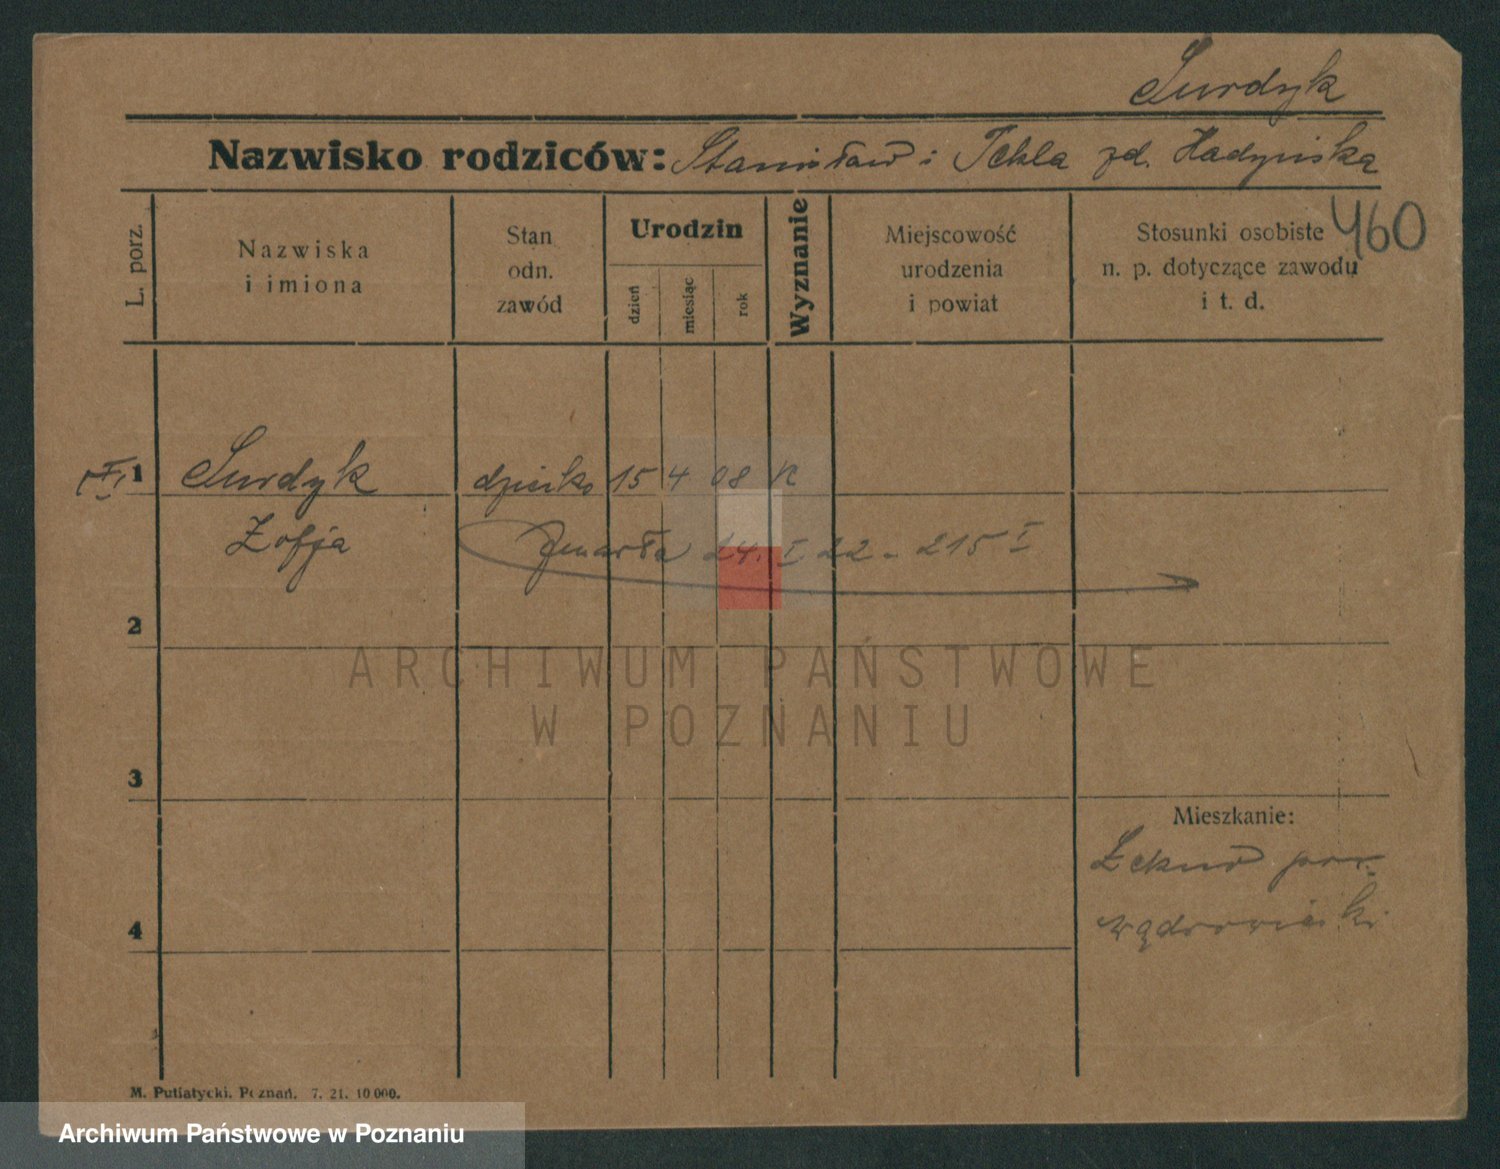 Surdyk
Nazwisko rodziców: Stanisław i Tekla zd. Hadyńska
460
L. porz.
Nazwiska
i imiona
Stan
odn.
zawód
Urodzin
dzień
miesiąc
rok
Wyznanie
Miejscowość
urodzenia
i powiat
Stosunki osobiste
n. p. dotyczące zawodu
i t. d.
1 Surdyk dziecko 15 4 08 K
Zofja zmarła 24. I 22 - 215 I
2
ARCHIWUM PAŃSTWOWE
W POZNANIU
3
Mieszkanie:
Łekno pow.
wągrowiecki
4
M. Putiatycki. Poznań. 7. 21. 10 000.
Archiwum Państwowe w Poznaniu